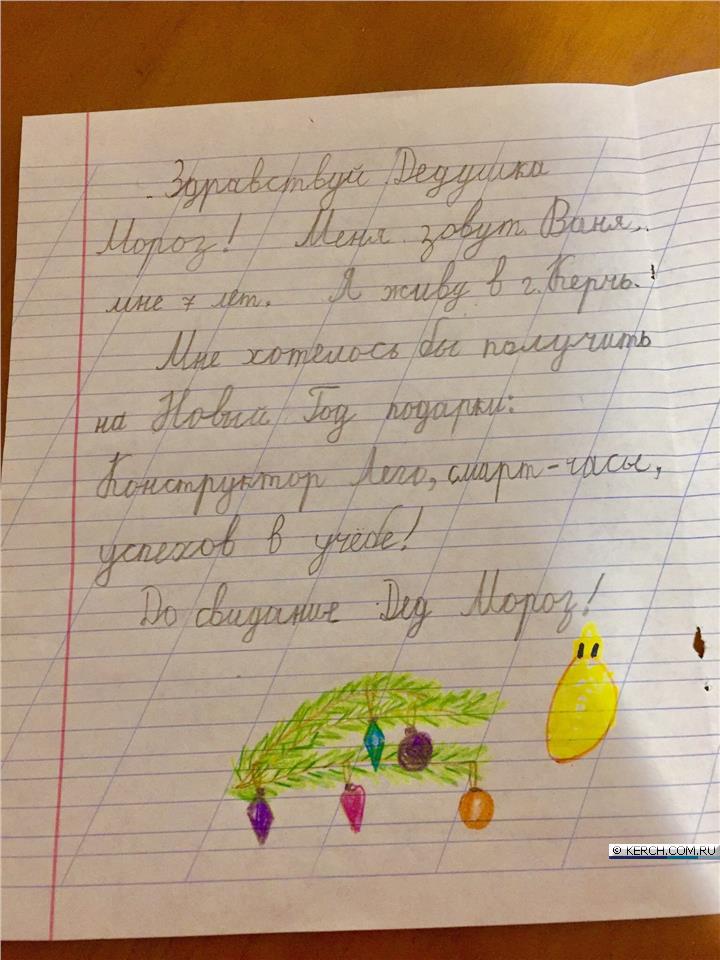 Здравствуй Дедушка
Мороз! Меня зовут Ваня,
мне 7 лет. Я живу в г. Керчь.
Мне хотелось бы получить
на Новый Год подарки:
Конструктор Лего, смарт-часы,
успехов в учёбе!
До свидание Дед Мороз!
© KERCH.COM.RU